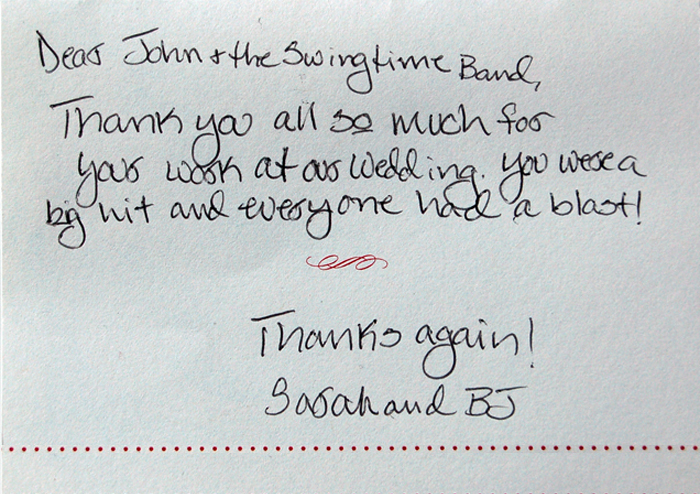 Dear John + the Swingtime Band,
Thank you all so much for
your work at our wedding. You were a
big hit and everyone had a blast!
Thanks again!
Sarah and BJ